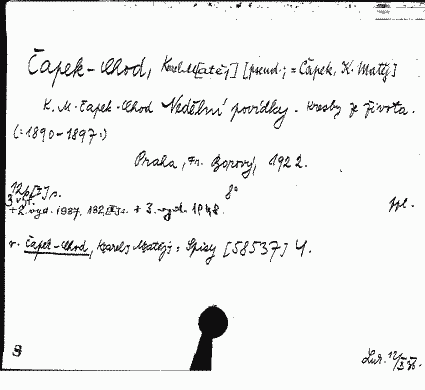 Čapek-Chod, Karel M[atěj] [pseud.; = Čapek, K. Matěj]
K. M. Čapek-Chod Nedělní povídky. Kresby ze života.
(:1890-1897:)
Praha, Fr. Borový, 1922.
8°
3 vyt.
+ 2. vyd. 1937. + 3. vyd. 1948.
ppl.
v. Čapek-Chod, Karel Matěj: Spisy [58537] 4.
8